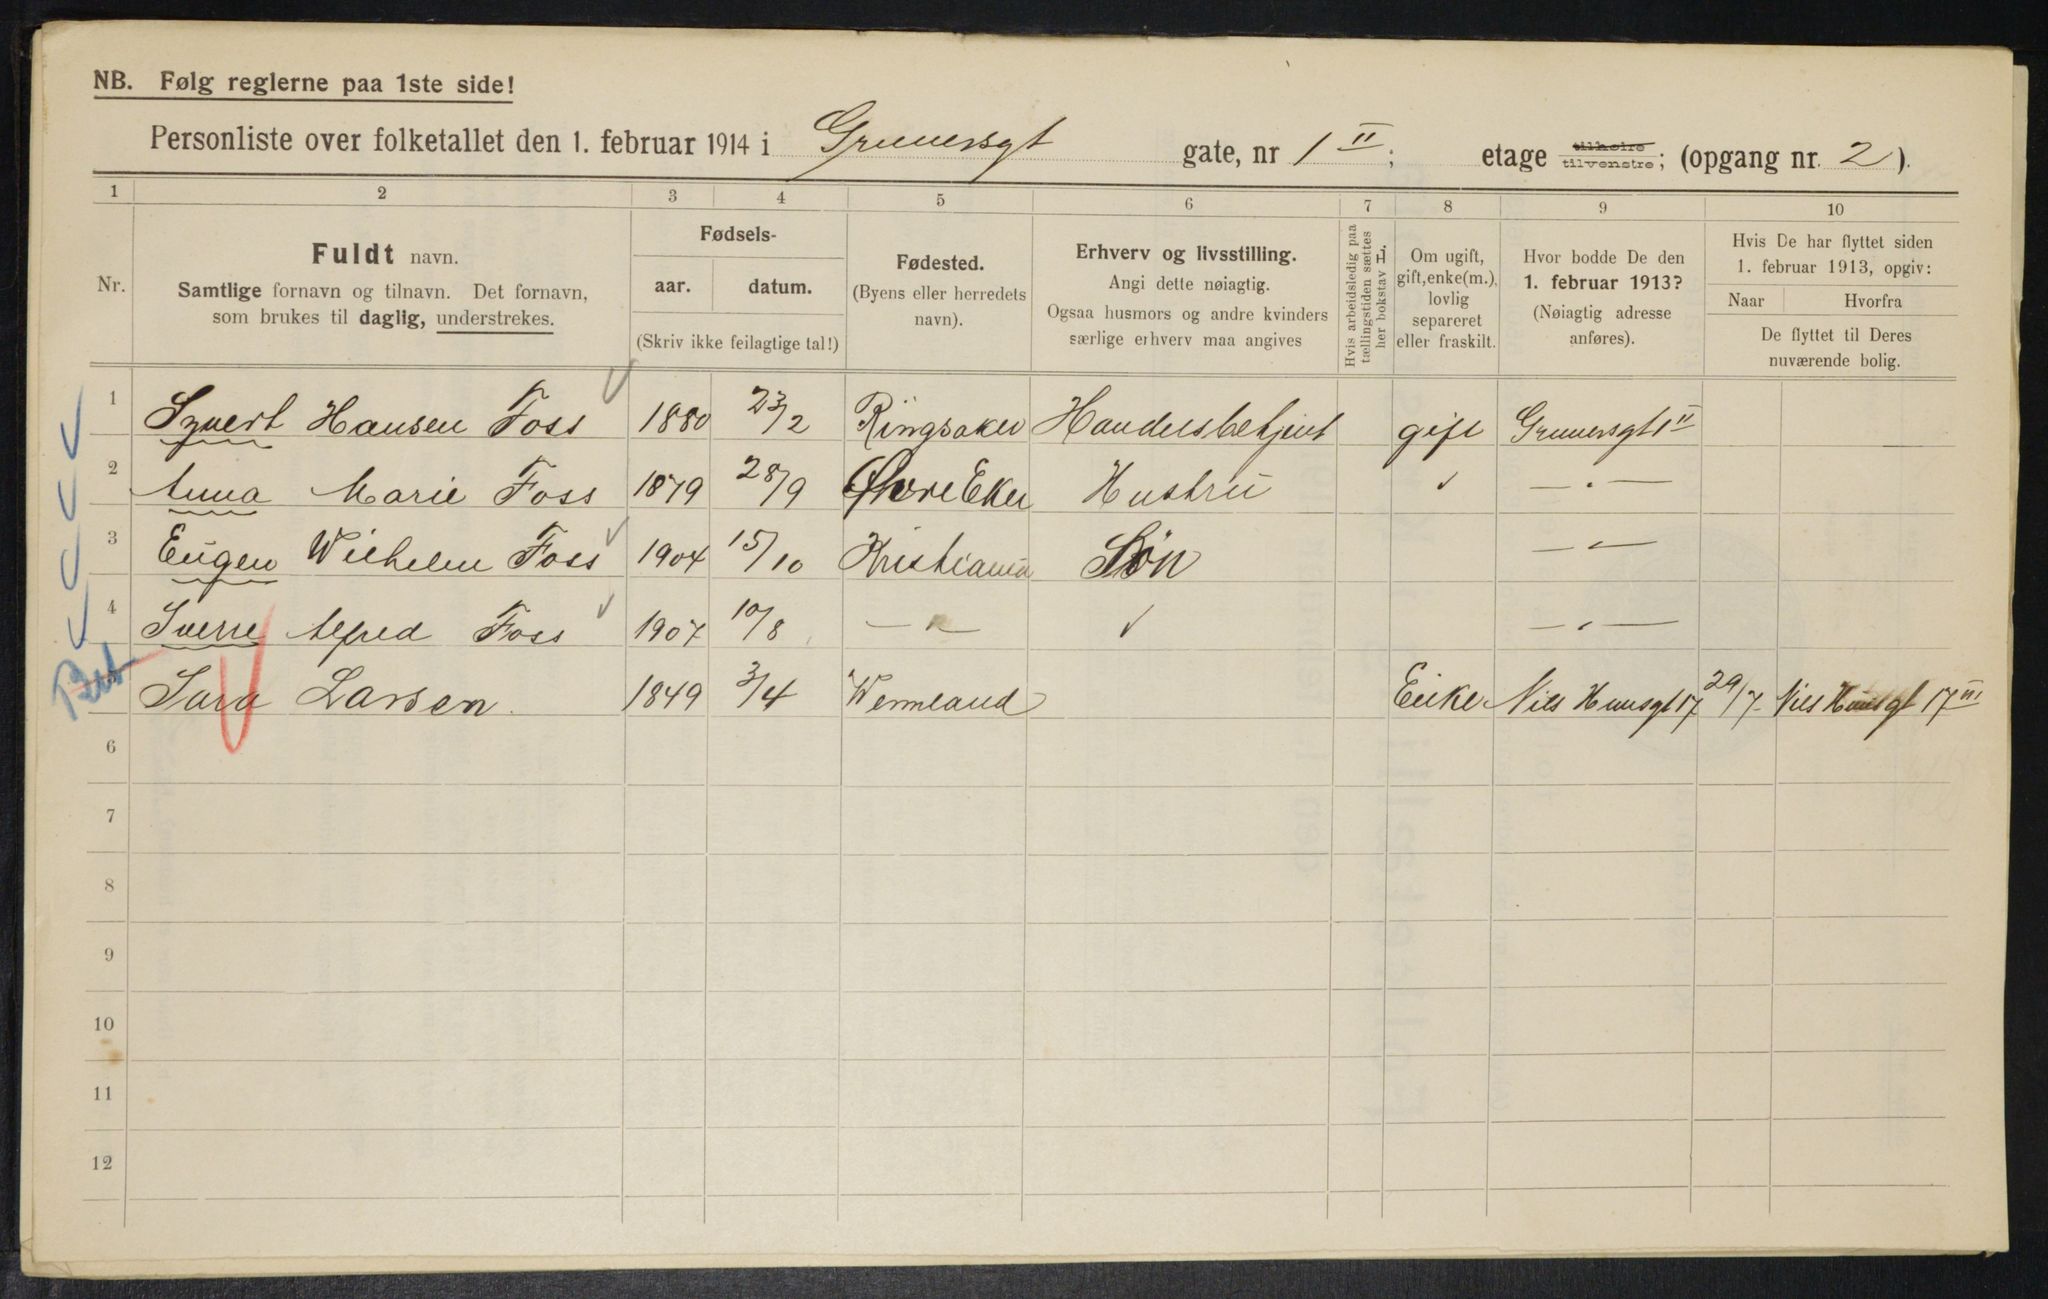 NB. Følg reglerne paa 1ste side!
Personliste over folketallet den 1. februar 1914 i Grunersgt gate, nr 1 II; etage tilhøire tilvenstre; (opgang nr. 2).
1 2 3 4 5 6 7 8 9 10
Nr.
Fuldt navn.
Samtlige fornavn og tilnavn. Det fornavn,
som brukes til daglig, understrekes.
Fødsels-
aar. datum.
(Skriv ikke feilagtige tal!)
Fødested.
(Byens eller herredets
navn).
Erhverv og livsstilling.
Angi dette nøiagtig.
Ogsaa husmors og andre kvinders
særlige erhverv maa angives
Hvis arbeidsledig paa
tællingstiden sættes
her bokstav L.
Om ugift,
gift, enke(m.),
lovlig
separeret
eller fraskilt.
Hvor bodde De den
1. februar 1913?
(Nøiagtig adresse
anføres).
Hvis De har flyttet siden
1. februar 1913, opgiv:
Naar Hvorfra
De flyttet til Deres
nuværende bolig.
1 Syvert Hansen Foss 1880 23/2 Ringsaker Handelsbetjent gift Grunersgt 1 II
2 Anna Marie Foss 1879 28/9 Øvre Eker Hustru ✓ — „ —
3 Eugen Wilhelm Foss 1904 15/10 Kristiania Søn — „ —
4 Sverre Alfred Foss 1907 10/8 — „ — ✓ — „ —
Sara Larsen. 1849 3/4 Wermland Enke Nils Huusgt 17 29/7 Nils Huusgt 17 III
6
7
8
9
10
11
12